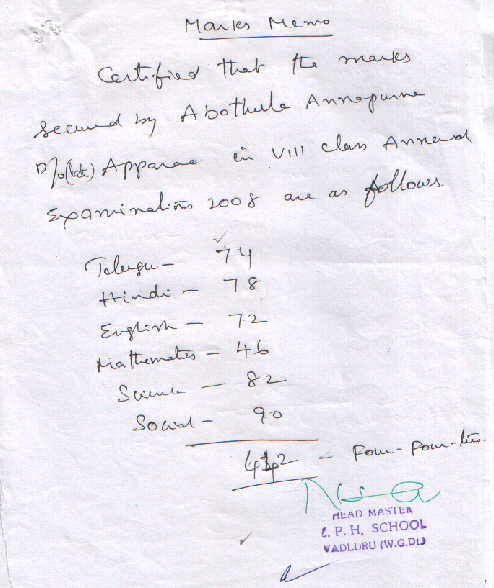 Marks Memo
Certified that the marks
secured by Abothula Annapurna
D/o (late) Apparao in VIII class Annual
Examinations 2008 are as follows.
Telugu - 74
Hindi - 78
English - 72
Mathematics - 46
Science - 82
Social - 90
442 - Four-Four-two
HEAD MASTER
Z. P. H. SCHOOL
VADLURU (W.G.Dt.)